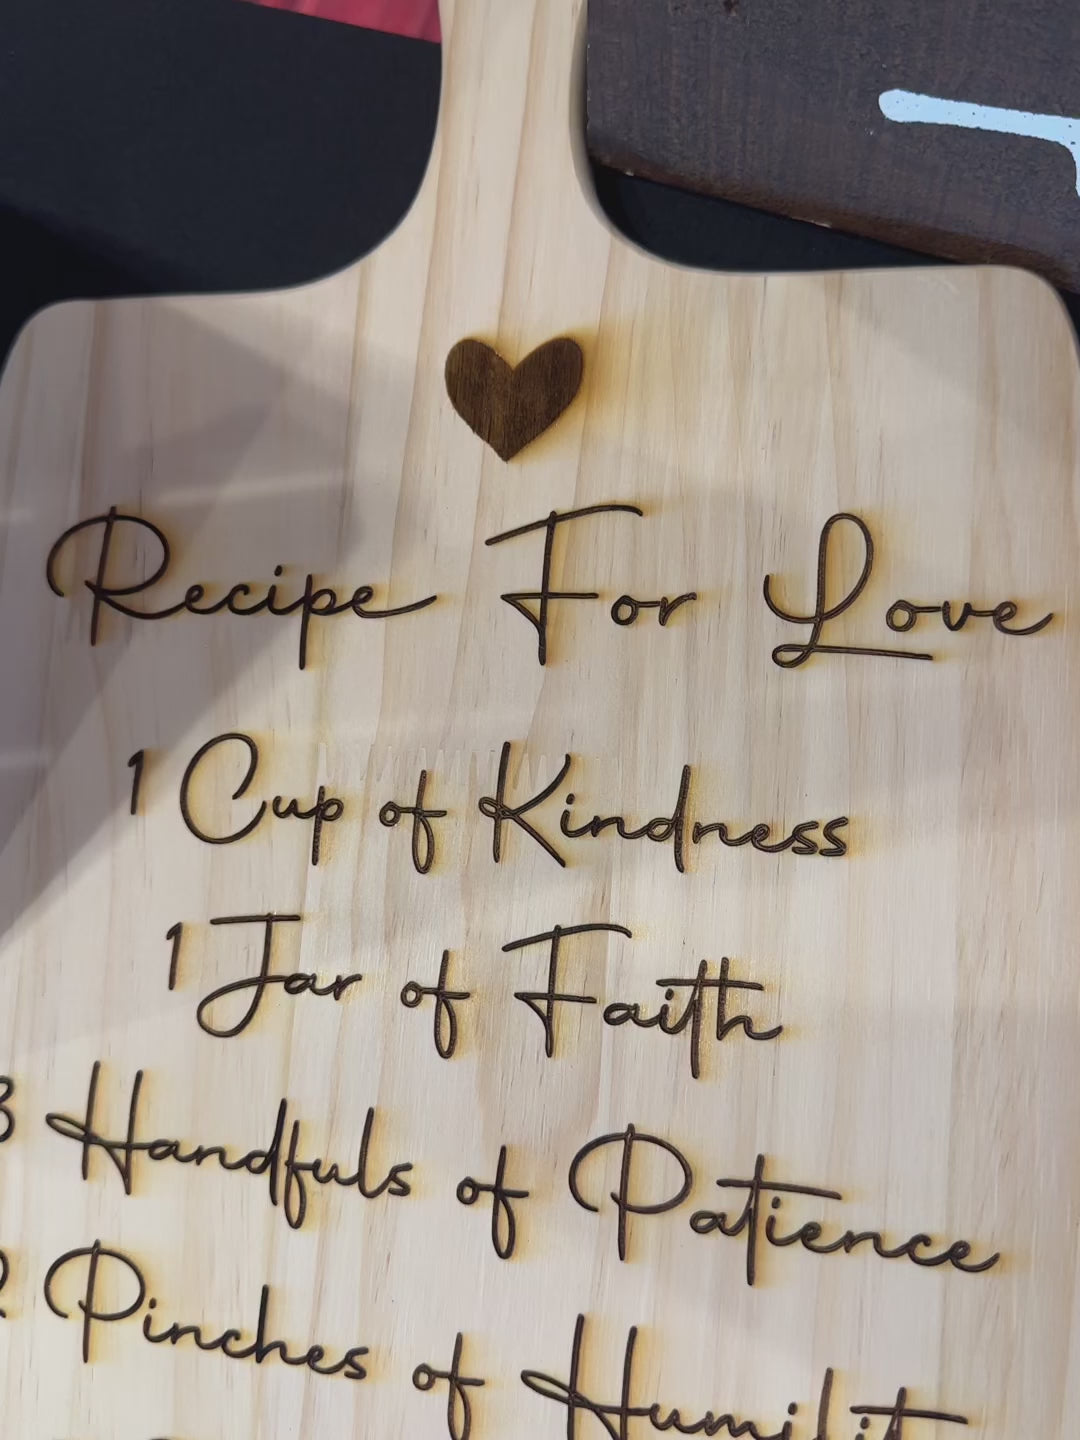 Recipe For Love
1 Cup of Kindness
1 Jar of Faith
3 Handfuls of Patience
2 Pinches of